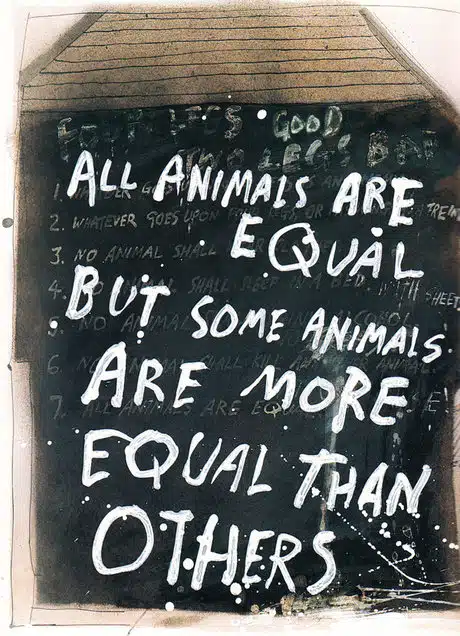 FOUR LEGS GOOD
TWO LEGS BAD
ALL ANIMALS ARE
EQUAL
BUT SOME ANIMALS
ARE MORE
EQUAL THAN
OTHERS
1.
2. WHATEVER GOES UPON
3. NO ANIMAL SHALL
4. ANIMAL SHALL SLEEP IN A BED WITH SHEETS
5. NO ANIMAL ALCOHOL
6. NO ANIMAL SHALL KILL ANIMAL
7. ALL ANIMALS ARE EQUAL